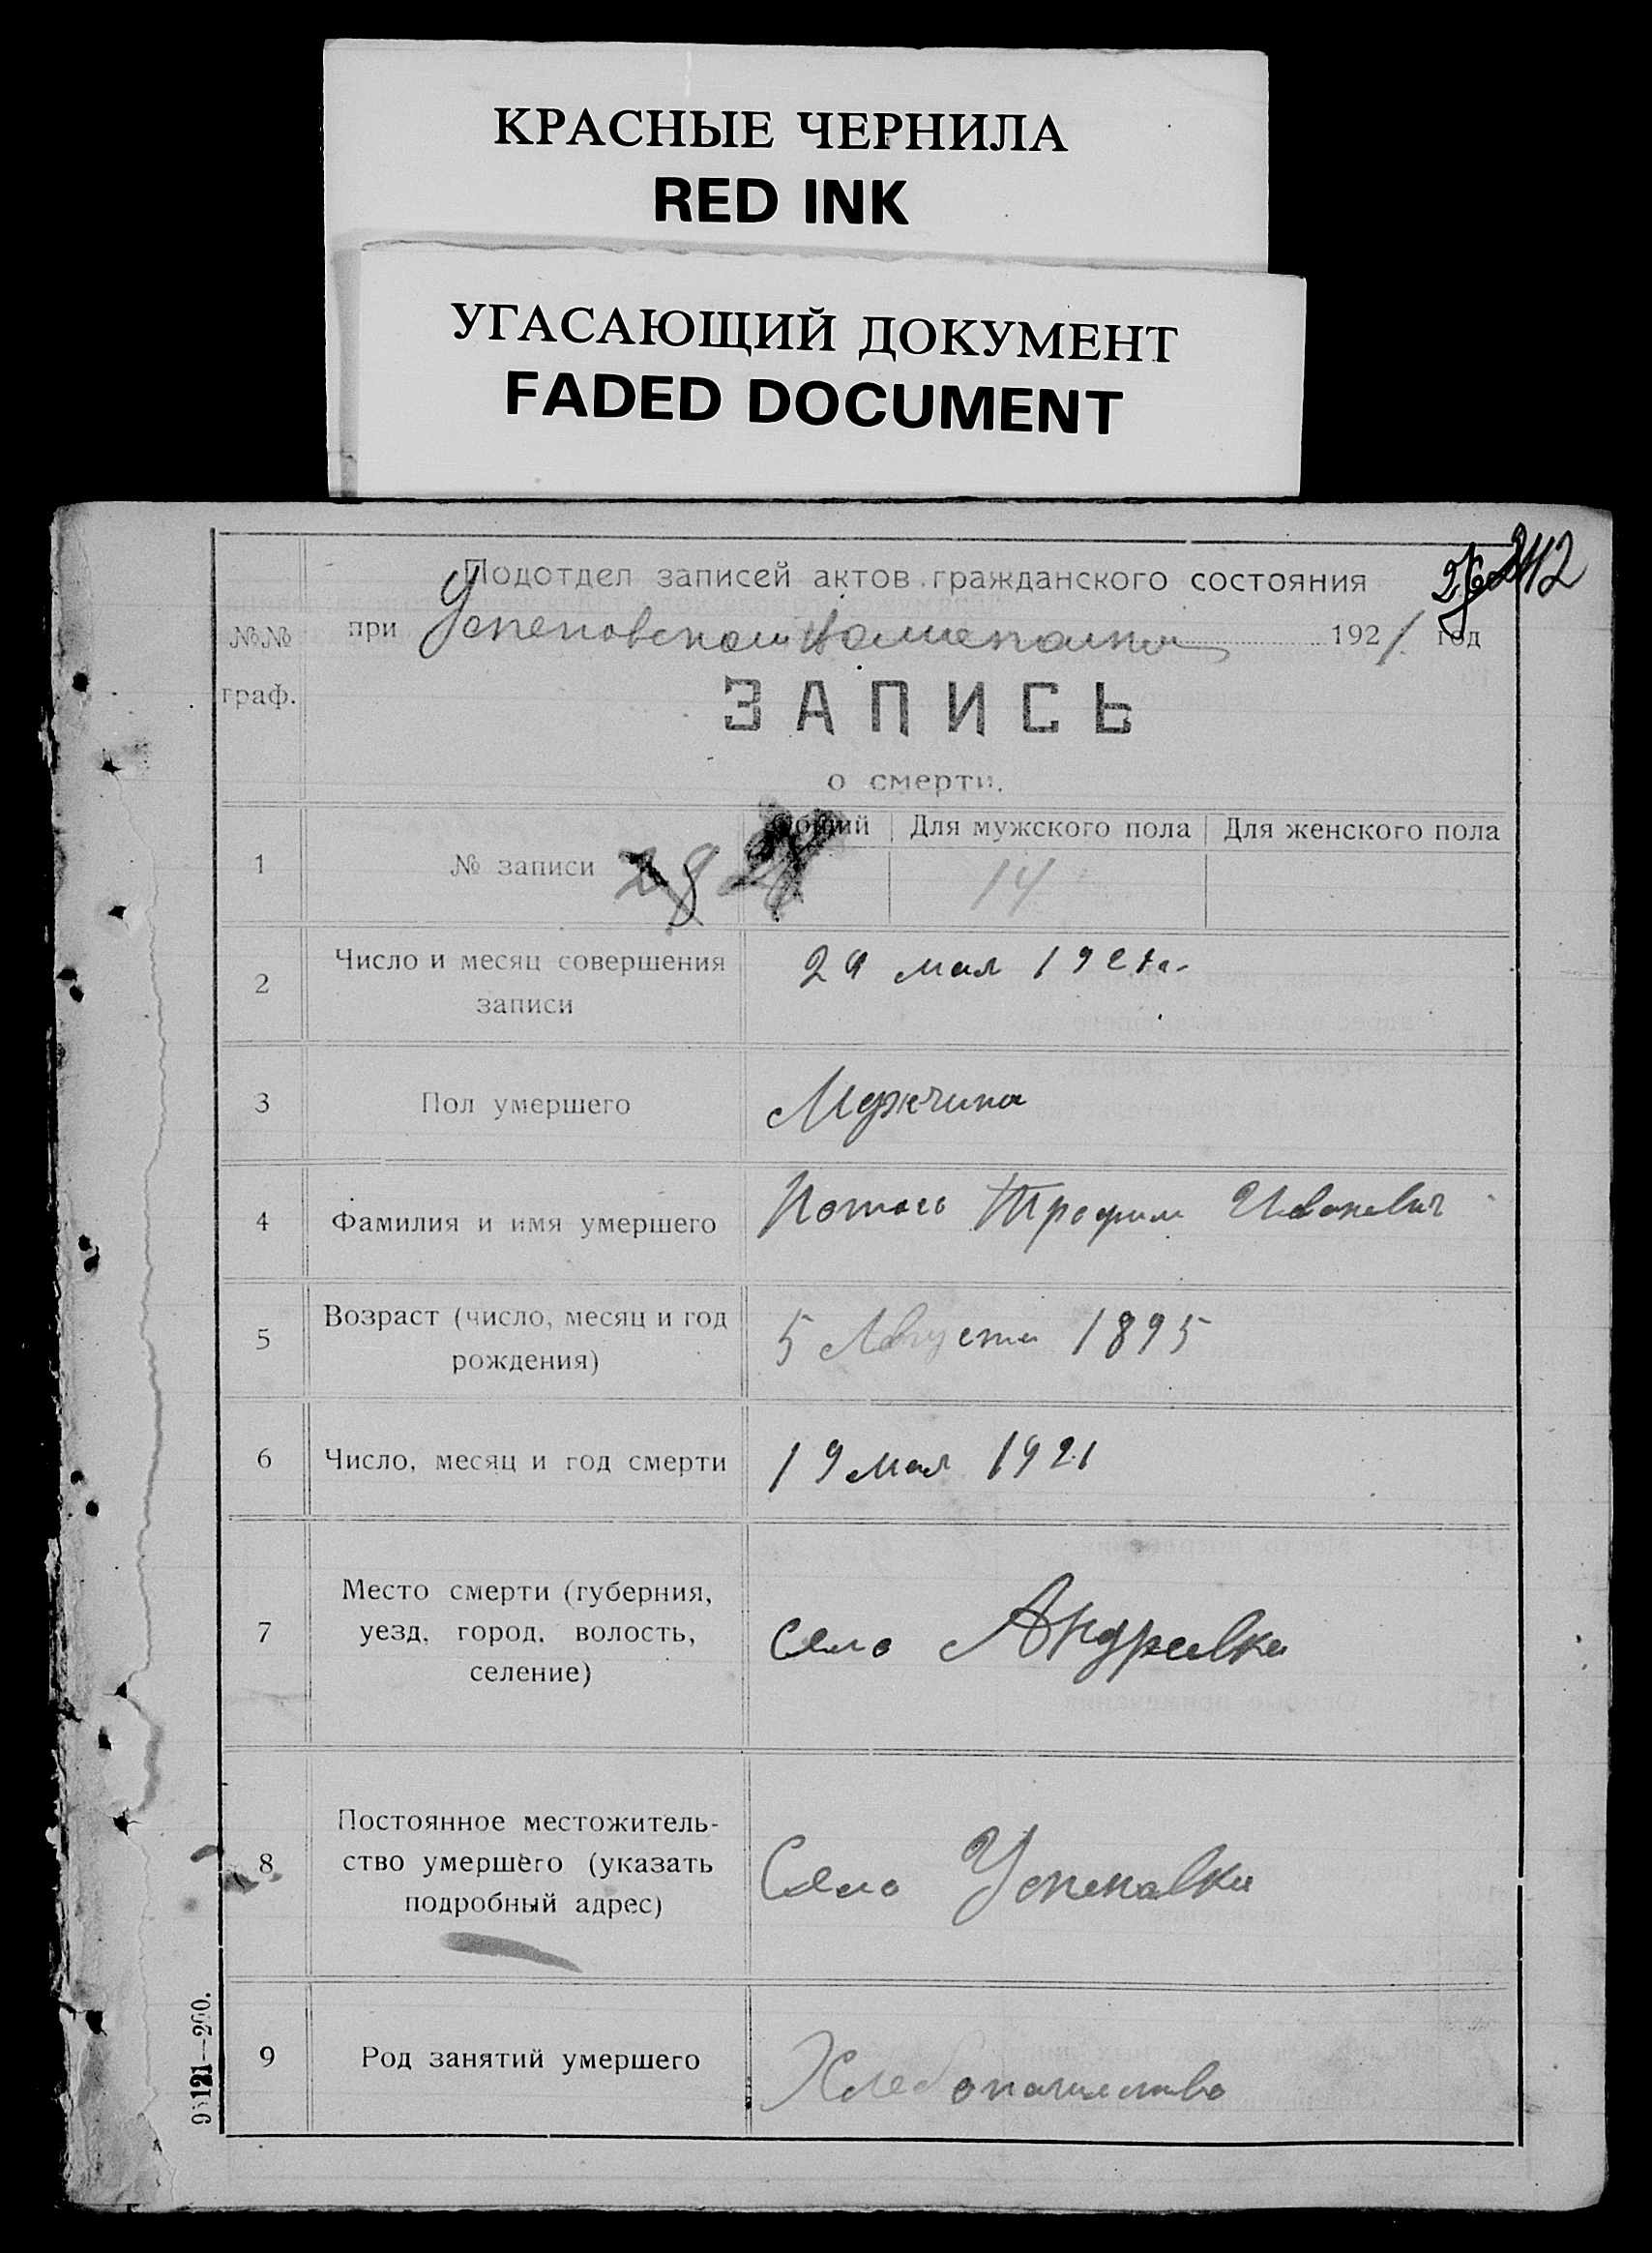 КРАСНЫЕ ЧЕРНИЛА
RED INK
УГАСАЮЩИЙ ДОКУМЕНТ
FADED DOCUMENT
Подотдел записей актов гражданского состояния
при 192 1 год
№№ граф.
ЗАПИСЬ
о смерти.
Общий Для мужского пола Для женского пола
1 № записи 28 28 14
2 Число и месяц совершения
записи
29 мая 1921 г.
3 Пол умершего Мужчина
4 Фамилия и имя умершего Трофим Иванович
5 Возраст (число, месяц и год
рождения)
5 Августа 1895
6 Число, месяц и год смерти 19 мая 1921
7 Место смерти (губерния,
уезд, город, волость,
селение)
село
8 Постоянное местожитель-
ство умершего (указать
подробный адрес)
Село Успеновка
9 Род занятий умершего Хлебопашество